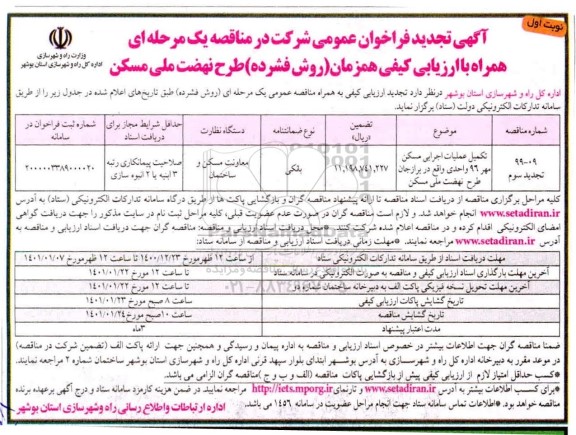 نوبت اول
وزارت راه و شهرسازی
اداره کل راه و شهرسازی استان بوشهر
آگهی تجدید فراخوان عمومی شرکت در مناقصه یک مرحله ای
همراه با ارزیابی کیفی همزمان (روش فشرده) طرح نهضت ملی مسکن
اداره کل راه و شهرسازی استان بوشهر درنظر دارد تجدید ارزیابی کیفی به همراه مناقصه عمومی یک مرحله ای (روش فشرده) طبق تاریخ‌های اعلام شده در جدول زیر را از طریق
سامانه تدارکات الکترونیکی دولت (ستاد) برگزار نماید.
شماره مناقصه موضوع تضمین (ریال) نوع ضمانتنامه دستگاه نظارت حداقل شرایط مجاز برای دریافت اسناد شماره ثبت فراخوان در سامانه
۹۹-۰۹ تجدید سوم تکمیل عملیات اجرایی مسکن مهر ۹۶ واحدی واقع در برازجان طرح نهضت ملی مسکن ۱۱,۱۹۸,۷۴۱,۲۲۷ بانکی معاونت مسکن و ساختمان صلاحیت پیمانکاری رتبه ۳ ابنیه یا ۲ انبوه سازی ۲۰۰۰۰۰۳۳۸۹۰۰۰۰۲۰
کلیه مراحل برگزاری مناقصه از دریافت اسناد مناقصه تا ارائه پیشنهاد مناقصه گران و بازگشایی پاکت ها از طریق درگاه سامانه تدارکات الکترونیکی (ستاد) به آدرس
www.setadiran.ir انجام خواهد شد. و لازم است مناقصه گران در صورت عدم عضویت قبلی، کلیه مراحل ثبت نام در سایت مذکور را جهت دریافت گواهی
امضای الکترونیکی اقدام کرده و در مناقصه اعلام شده شرکت کنند. *محل دریافت اسناد ارزیابی و مناقصه: مناقصه گران جهت دریافت اسناد ارزیابی و مناقصه به
آدرس www.setadiran.ir مراجعه نمایند. *مهلت زمانی دریافت اسناد ارزیابی و مناقصه از سامانه ستاد:
مهلت دریافت اسناد از طریق سامانه تدارکات الکترونیکی ستاد از ساعت ۱۲ ظهر مورخ ۱۴۰۰/۱۲/۲۳ تا ساعت ۱۲ ظهر مورخ ۱۴۰۱/۰۱/۰۷
آخرین مهلت بارگذاری اسناد ارزیابی کیفی و مناقصه به صورت الکترونیکی در سامانه ستاد تا ساعت ۱۲ مورخ ۱۴۰۱/۰۱/۲۲
آخرین مهلت تحویل نسخه فیزیکی پاکت الف به دبیرخانه ساختمان شماره دو تا ساعت ۱۲ مورخ ۱۴۰۱/۰۱/۲۲
تاریخ گشایش پاکات ارزیابی کیفی ساعت ۸ صبح مورخ ۱۴۰۱/۰۱/۲۳
تاریخ گشایش مناقصه ساعت ۱۰ صبح مورخ ۱۴۰۱/۰۱/۲۴
مدت اعتبار پیشنهاد ۳ماه
ضمنا مناقصه گران جهت اطلاعات بیشتر در خصوص اسناد ارزیابی و مناقصه به اداره پیمان و رسیدگی و همچنین جهت ارائه پاکت الف (تضمین شرکت در مناقصه)
در موعد مقرر به دبیرخانه اداره کل راه و شهرسازی به آدرس بوشهر ابتدای بلوار سپهد قرنی اداره کل راه و شهرسازی استان بوشهر ساختمان شماره ۲ مراجعه نمایند.
*کسب حداقل امتیاز لازم از ارزیابی کیفی پیش از بازگشایی پاکات مناقصه (الف و ب و ج) مناقصه گران الزامی می باشد.
*برای کسب اطلاعات بیشتر به آدرس www.setadiran.ir و تارنمای http://iets.mporg.ir مراجعه نمایید. در ضمن هزینه کارمزد سامانه ستاد و درج آگهی برعهده برنده
مناقصه خواهد بود. *اطلاعات تماس سامانه ستاد جهت انجام مراحل عضویت در سامانه ۱۴۵۶ می باشد.
اداره ارتباطات و اطلاع رسانی راه و شهرسازی استان بوشهر